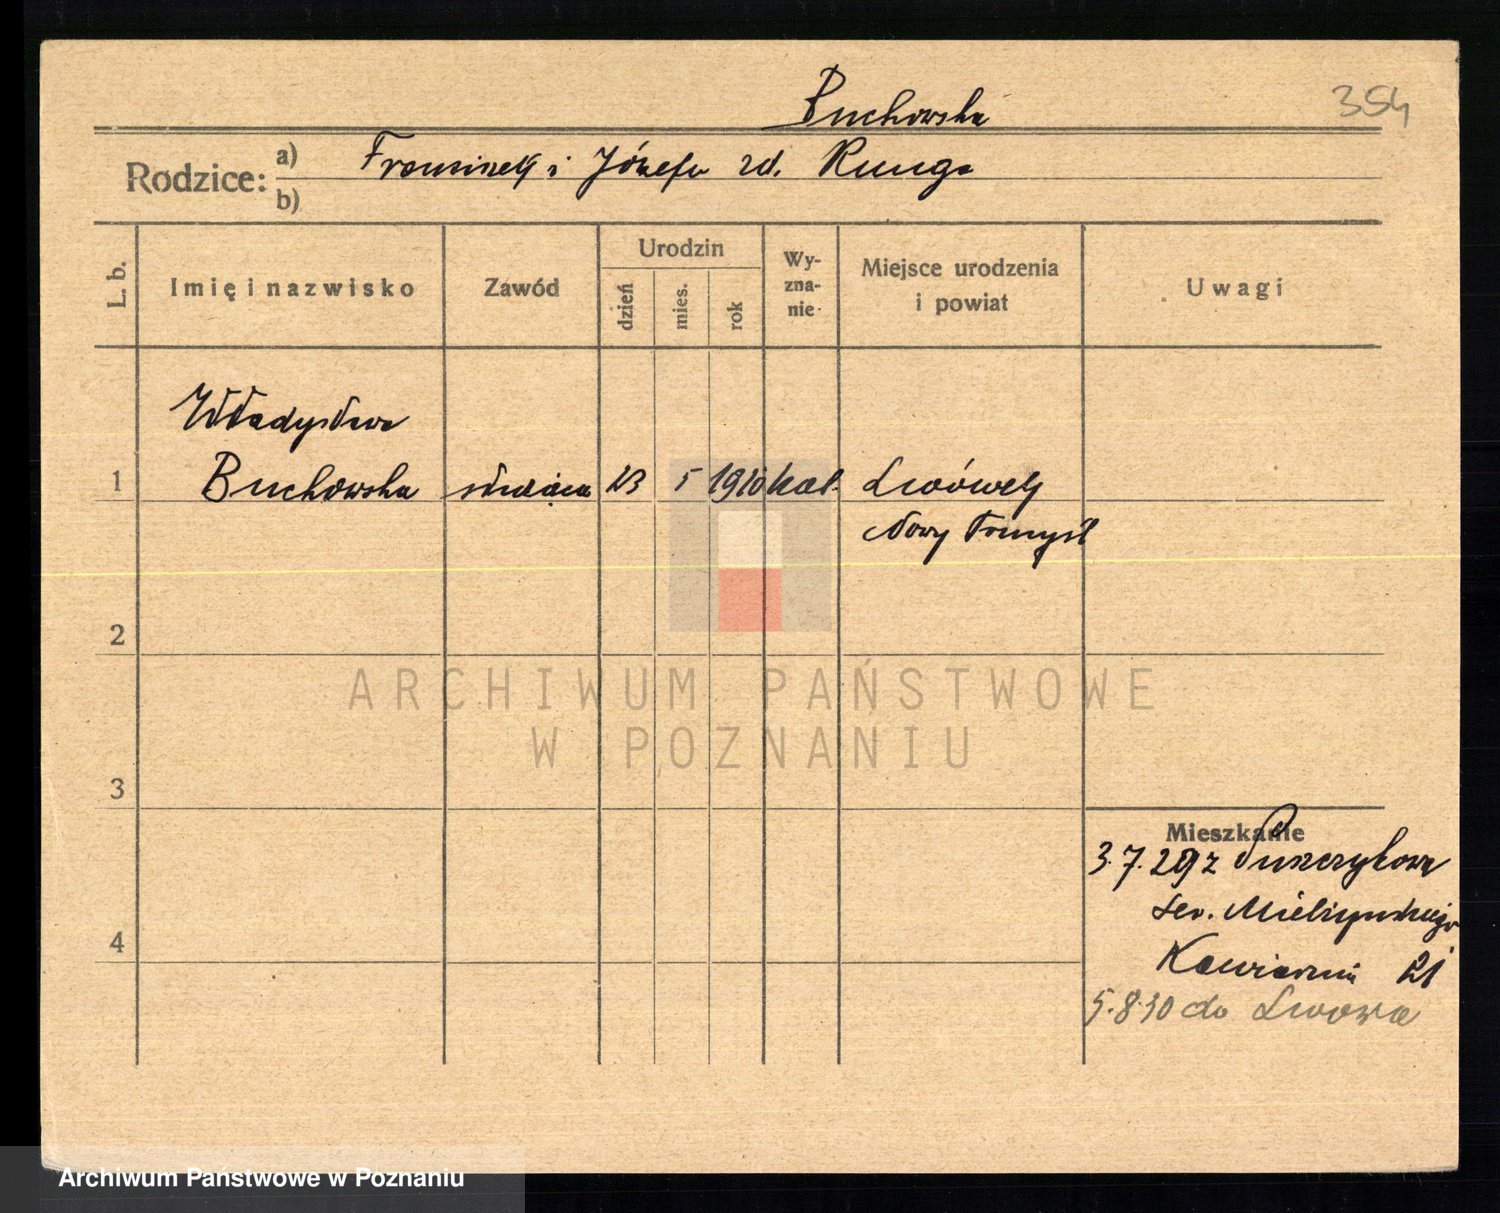 Buchowska
354
Rodzice: a) Franciszek i Józefa zd. Runge
b)
L. b.
Imię i nazwisko
Zawód
Urodzin
dzień
mies.
rok
Wy-
zna-
nie
Miejsce urodzenia
i powiat
Uwagi
Władysława
1 Buchowska służąca 23 5 1910 kat. Lwówek
Nowy Tomyśl
2
3
4
Mieszkanie
3.7.29 z Puszczykowa
Sew. Mielżyńskiego
21
5.8.30 do Lwowa
ARCHIWUM PAŃSTWOWE
W POZNANIU
Archiwum Państwowe w Poznaniu